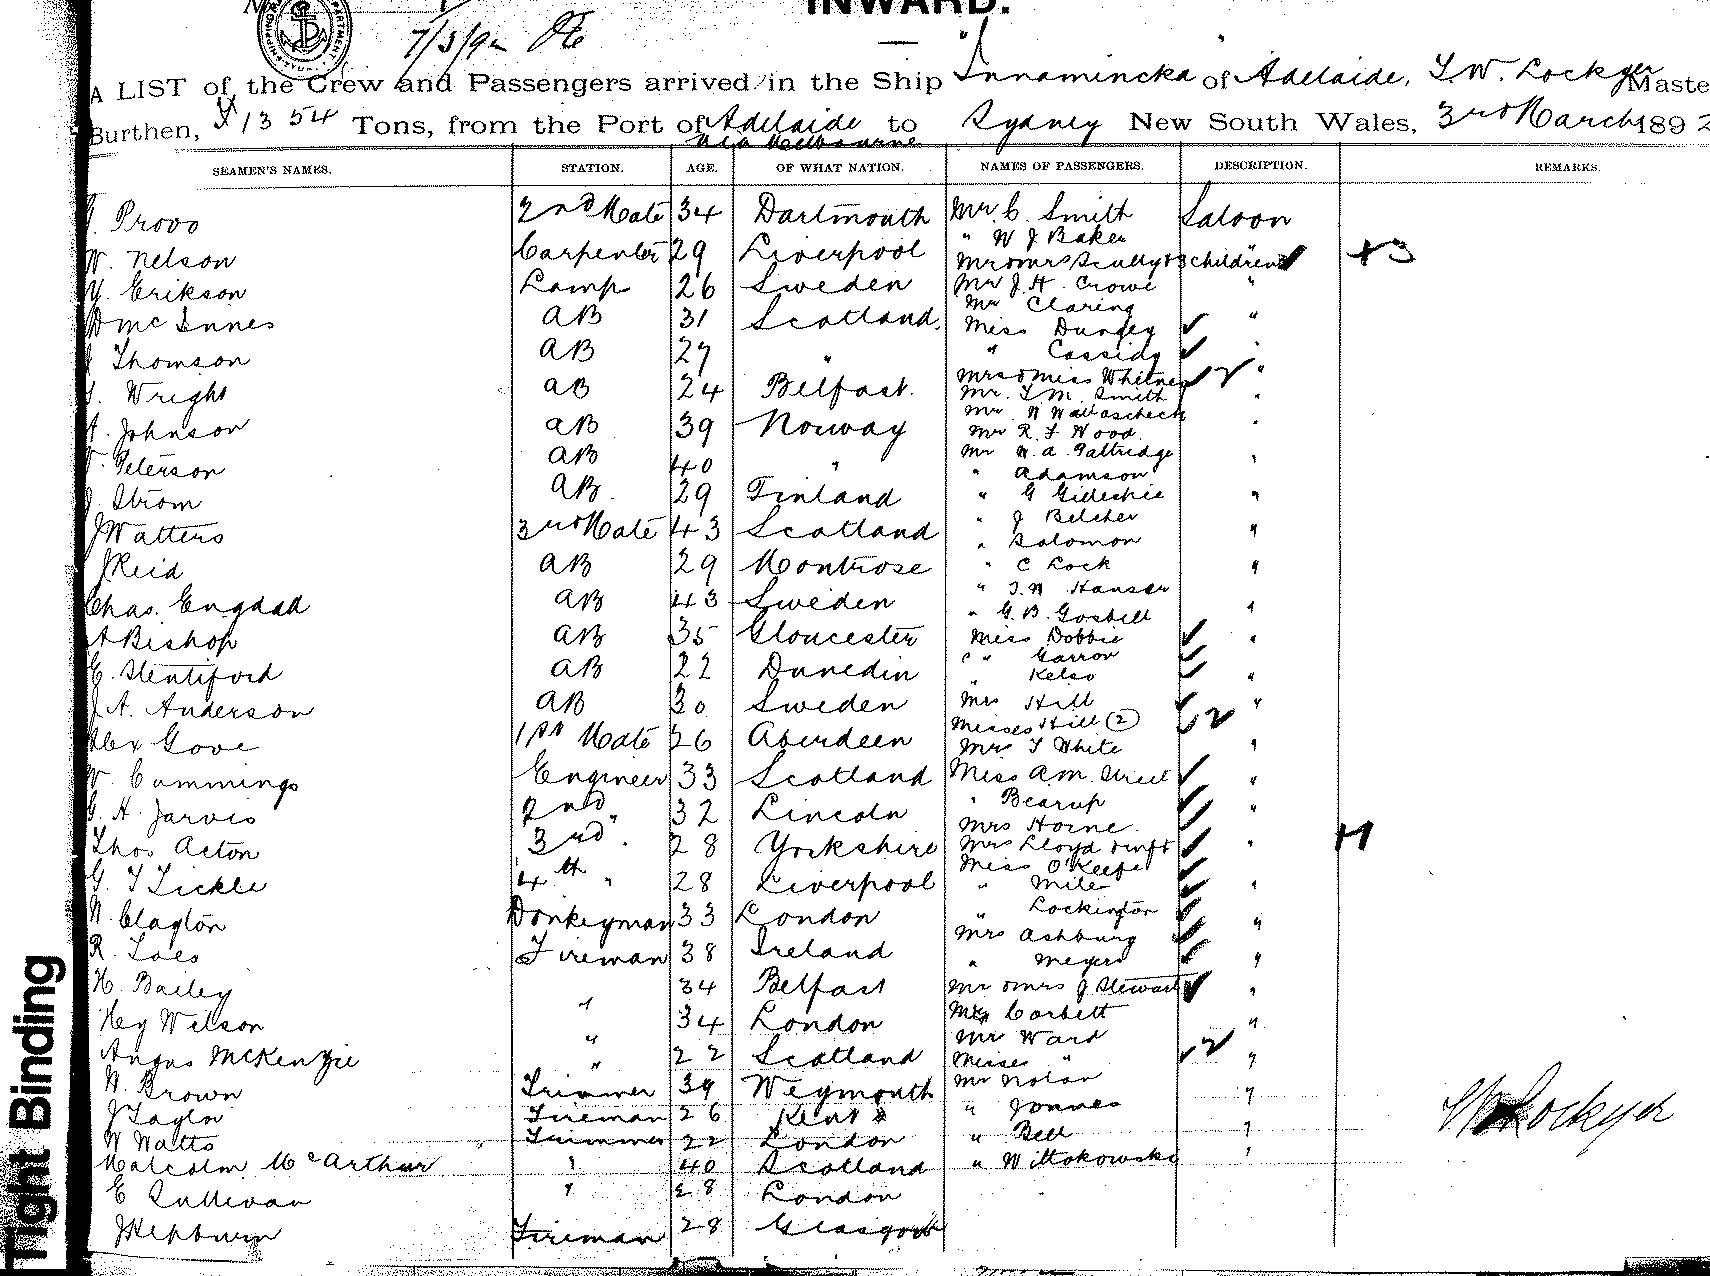 INWARD.
7/3/92
A LIST of the Crew and Passengers arrived in the Ship "Innamincka" of Adelaide, T.W. Lockyer Maste
Burthen, 1354 Tons, from the Port of Adelaide to Sydney New South Wales, 3rd March 1892
via Melbourne
SEAMEN'S NAMES. STATION. AGE. OF WHAT NATION. NAMES OF PASSENGERS. DESCRIPTION. REMARKS.
Provo 2nd Mate 34 Dartmouth Mr C. Smith Saloon
W. Nelson Carpenter 29 Liverpool " W J Baker
Mr & Mrs Scully & 3 children " +3
Y. Erikson Lamp 26 Sweden Mr J.H. Crowe "
D McInnes AB 31 Scotland. Mr Claring "
Miss Dungey
J Thomson AB 27 " " Cassidy "
Wright AB 24 Belfast. Mrs & Miss Whitney 2 "
Mr. T.M. Smith "
Johnson AB 39 Norway Mr
Mr R. F Wood.
Peterson AB 40 " Mr W. A. Paltridge "
" Adamson
J. Strom AB. 29 Finland " G "
J Watters 3rd Mate 43 Scotland " J Belcher "
" Salomon
J Reid AB 29 Montrose " C Lock "
Chas. Engdahl AB 43 Sweden " Hansen "
" G.B. Gosbell
A Bishop AB 35 Gloucester Miss Dobbie "
" Garron
E. Stentiford AB 22 Dunedin " Kelso "
J A. Anderson AB 30 Sweden Mrs Hill "
Misses Hill (2) 2
Alex Gove 1st Mate 26 Aberdeen Mrs T White "
W. Cummings Engineer 33 Scotland Miss A.M. Street "
G. H. Jarvis 2nd " 32 Lincoln " Bearup "
Mrs Horne.
Thos Acton 3rd " 28 Yorkshire Mrs Lloyd & inft " +1
Miss O'Keefe
G. T Tickle 4th " 28 Liverpool " Mile "
W. Clayton Donkeyman 33 London " Lockington "
Mrs Ashburg
R. Fireman 38 Ireland " Meyers "
H. Bailey " 34 Belfast Mr & Mrs J Stewart "
Hy Wilson " 34 London Corbett "
Mr Ward
Angus McKenzie " 22 Scotland Misses " 2 "
W. Brown Trimmer 39 Weymouth Mr Nolan "
J Taylor Fireman 26 Kent " Jonnes "
W Watts Trimmer 22 London " Bell "
Malcolm McArthur " 40 Scotland " Wittokowski "
E Sullivan " 28 London
J Hepburn Fireman 28 Glasgow
TW Lockyer
Tight Binding